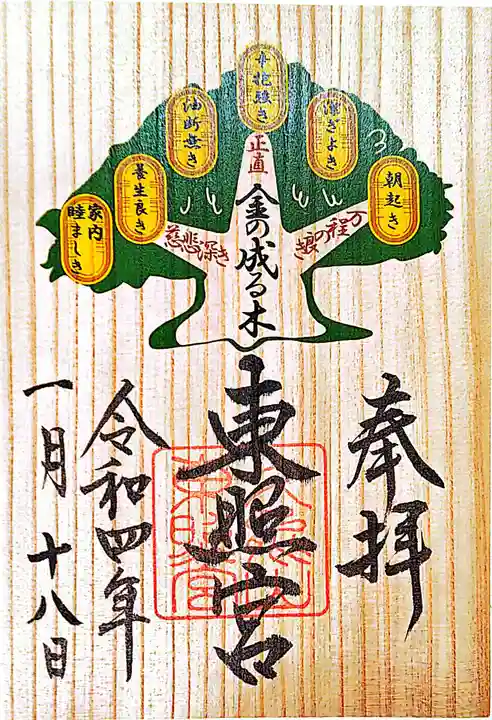 朝起き
潔ぎよき
辛抱強き
油断無き
養生良き
家内
睦ましき
万程の
正直
慈悲深き
金の成る木
奉拝
東照宮
令和四年
一月十八日